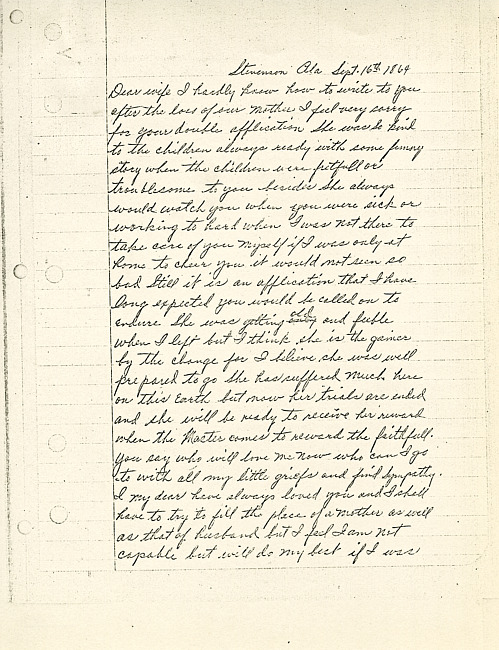 Stevenson Ala Sept. 16th 1864
Dear wife I hardly know how to write to you
after the loss of our Mother I feel very sorry
for your double application She was so kind
to the children always ready with some funny
story when the children were fretfull or
troublesome to you besides she always
would watch you when you were sick or
working to hard when I was not there to
take care of you myself if I was only at
home to cheer you it would not seen so
bad Still it is an application that I have
long expected you would be called on to
endure She was getting old and feble
when I left but I think she is the gainer
by the change for I believe she was well
prepared to go She has suffered much here
on this Earth but now her trials are ended
and she will be ready to receive her reward
when the Master comes to reward the faithfull.
You say who will love me now who can I go
to with all my little griefs and find sympathy.
I my dear have always loved you and I shall
have to try to fill the place of a mother as well
as that of husband but I feel I am not
capable but will do my best if I was